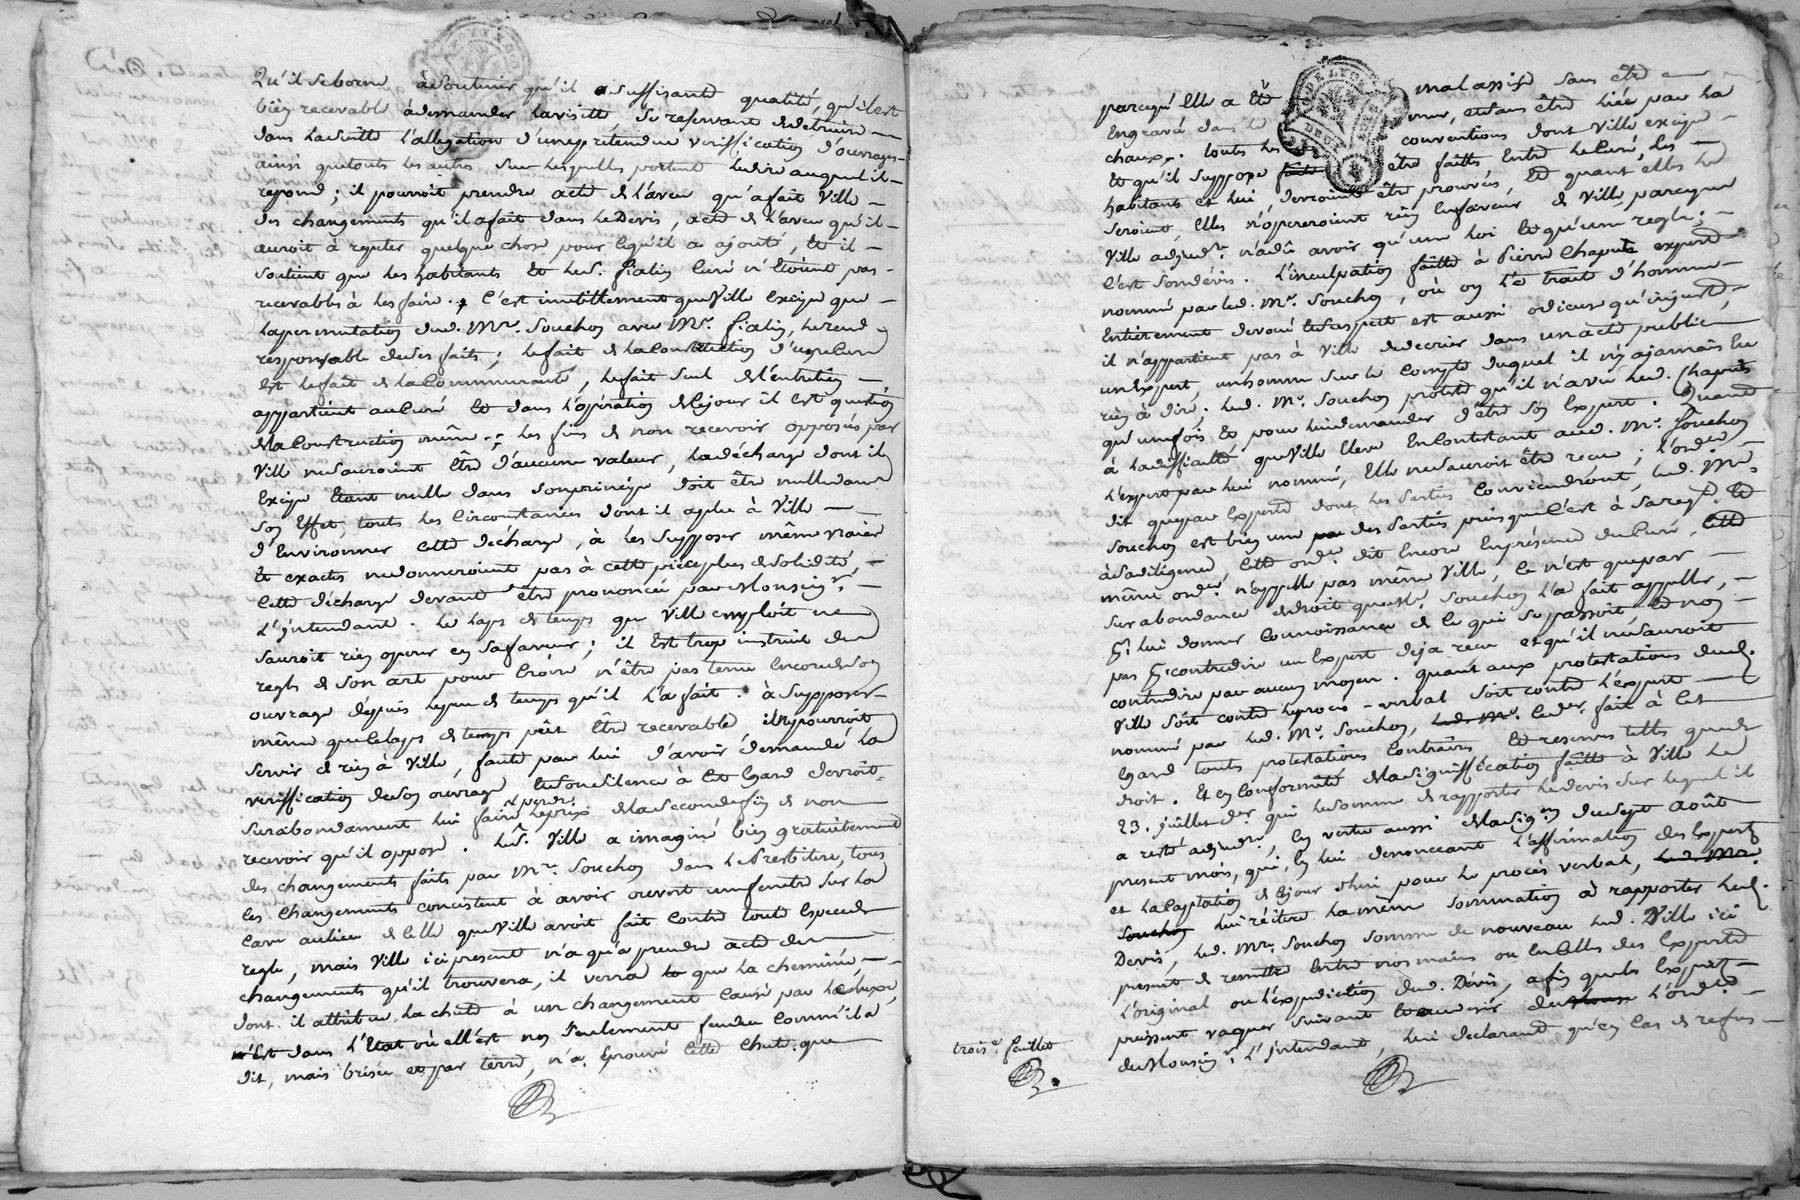 Qu'il se borne à soutenir qu'il a suffisante qualité, qu'il est
bien recevable à demander la visitte se reservant de detruire
dans la suitte l'allegation d'une prétendue veriffication d'ouvrages
ainsi que touts les autres sur lesquelles portent le dire auquel il
repond ; il pourroit prendre acte de l'aveu qu'a fait Ville
des changements qu'il a fait dans le Devis, acte de l'aveu qu'il
auroit à repeter quelque chose pour ce qu'il a ajouté, et il
soutient que les habitants et led. s.r fialin curé n'étoient pas
recevables à les faire. C'est inutillement que Ville excipe que
la permutation dud. Mre. Souchon avec Mre. fialin, le rend
responsable de ses faits ; le fait de la Construction d'une Cure
est le fait de la Communauté, le fait seul de l'entretien
appartient au Curé et dans l'opération de ce jour il est question
de la Construction même ; les fins de non recevoir opposées par
Ville ne sauroient être d'aucune valeur, la décharge dont il
excipe étant nulle dans son principe doit être nulle dans
son Effet, touts les Circonstances dont il a plu à Ville
d'Environner cette décharge, à les supposer même vraies
et exactes ne donneroient pas à cette pièce plus de solidité,
cette décharge devant être prononcée par Monseig.r
L'Intendant. Le laps de temps que Ville emploit ne
sauroit rien operer en sa faveur ; il est trop instruit des
regles de son art pour croire n'être pas tenu encore de son
ouvrage depuis le peu de temps qu'il l'a fait. à supposer
même que le laps de temps pût être recevable il ne pourroit
servir de rien à Ville, faute par lui d'avoir demandé la
veriffication de son ouvrage et son silence à cet Egard devroit
surabondament lui faire perdre le prix de la seconde fin de non
recevoir qu'il oppose. Led. Ville a imaginé bien gratuitement
des changements faits par Mre. Souchon dans le Presbitere, tous
les changements consistent à avoir ouvert une fenetre sur la
cave au lieu de celle que Ville avoit fait contre toute Espece de
regle, mais Ville ici present n'a qu'à prendre acte des
changements qu'il trouvera, il verra que la cheminée
dont il attribue la chute à un changement causé par
n'est dans l'Etat où elle est non seulement fendue comme il a
dit, mais brisée et par terre, n'a éprouvé cette chute que
parcequ'elle a été mal assise sans être
Engravée dans le mur, et sans être liée par la
chaux. Toutes les conventions dont Ville excipe
et qu'il suppose être faittes entre le Curé, les
habitants et lui, devroient être prouvées, et quant elles le
seroient, elles n'opereroient rien en faveur de Ville parceque
Ville adjud.re n'a dû avoir qu'une loi et qu'une regle.
C'est son dévis. L'inculpation faitte à Pierre Chapuis expert
nommé par led. Mre. Souchon, où on l'a traité d'homme
Entièrement devoué et suspect est aussi odieuse qu'injuste,
il n'appartient pas à Ville de decrier dans un acte public
un Expert, un homme sur le compte duquel il n'y a jamais eu
rien à dire. Led. Mre. Souchon proteste qu'il n'a vu led. Chapuis
qu'une fois et pour lui demander d'être son Expert. Quand
à la difficulté que Ville eleve en contestant aud. Mre. Souchon
l'expert par lui nommé, Elle ne sauroit être recue ; l'ord.ce
dit que par Experts dont les Parties conviendront, led. Mre.
Souchon est bien une des Parties puisque c'est à sa req.te et
à sa diligence. Cette ord.ce dit encore en présence du Curé, cette
même ord.ce n'appelle pas même Ville, ce n'est que par
surabondance de droit que Mre. Souchon l'a fait appeller,
pr. lui donner connoissance de ce qui se passoit, et non
pas pr. contredire un Expert deja recu et qu'il ne sauroit
contredire par aucun moyen. Quant aux protestations dud.
Ville soit contre le procès-verbal soit contre l'expert
nommé par led. Mre. Souchon, led. Mre. Cur. fait à cet
Egard touts protestations contraires et reserves telles que de
droit. Et en conformité de la signiffication faitte à Ville le
23. juillet der. qui le somme de rapporter le devis sur lequel il
a resté adjud.re, en vertu aussi de la sig.on du sept août
present mois, qui, en lui denonceant l'affirmation des Experts
et la captation de ce jour d'hui pour le procès verbal, led. Mre.
Souchon lui réitere la même sommation de rapporter led.
Devis, led. Mre. Souchon somme de nouveau led. Ville ici
present de remettre entre nos mains ou en celles des Experts
L'original ou l'expedition dud. Dévis, afin que les Experts
puissent vaquer suivant le l'ord.ce
de Monseig.r L'Intendant, lui declarant qu'en cas de refus
trois.e feuillet